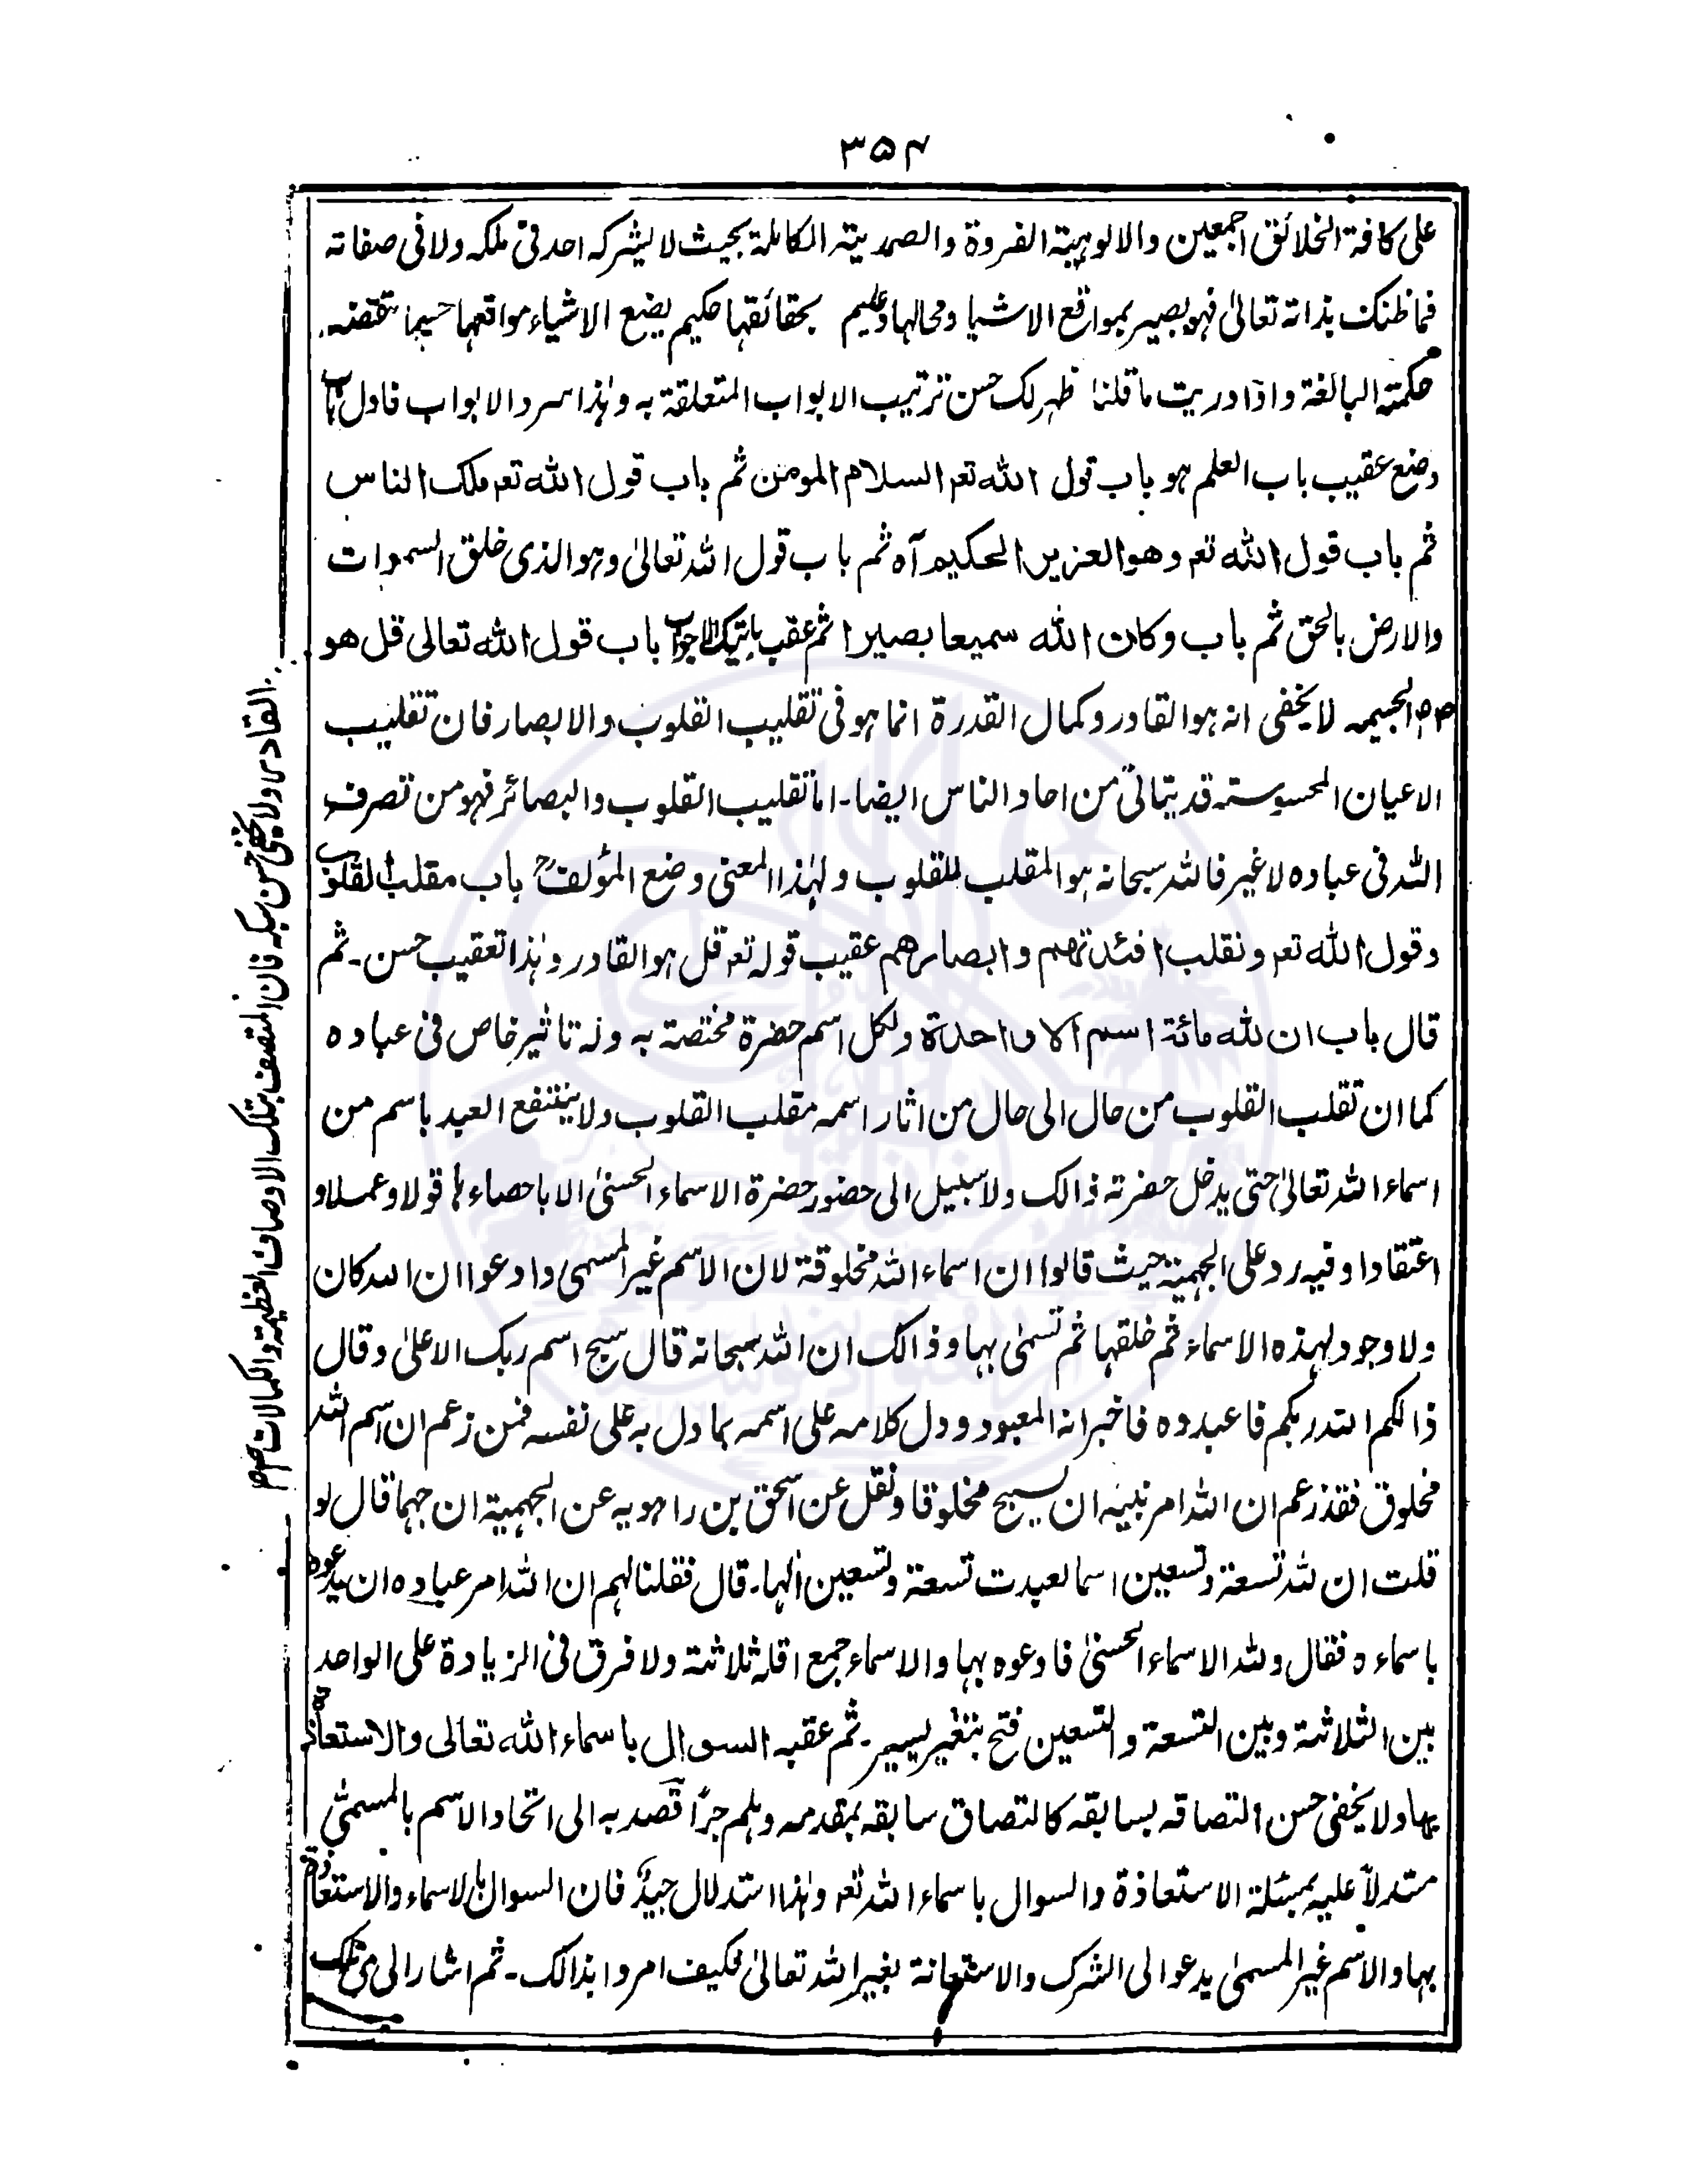 ۳۵۴
على كافة الخلائق اجمعين والالوهية الفردة والصمدية الكاملة بحيث لا يشركه احد فى ملكه ولا فى صفاته
فما ظنك بذاته تعالىٰ فهو بصير بمواقع الاشيا ومحالها وعليم بحقائقها حكيم يضع الاشياء مواقعها حسبما تقتضه
حكمته البالغة واذا دريت ما قلنا ظهر لك حسن ترتيب الابواب المتعلقة به وهٰذا سرد الابواب فاول باب
وضع عقيب باب العلم هو باب قول الله تعم السلام المومن ثم باب قول الله تعم ملك الناس
ثم باب قول الله تعم وهو العزيز الحكيم آه ثم باب قول الله تعالىٰ وهو الذى خلق السموات
والارض بالحق ثم باب وكان الله سميعا بصيرا ثم عقب بتيك الابواب باب قول الله تعالى قل هو
الجسيمه لا يخفى انه هو القادر وكمال القدرة انما هو فى تقليب القلوب والابصار فان تقليب
الاعيان المحسوسته قد يتاتى من احاد الناس ايضا۔ اما تقليب القلوب والبصائر فهو من تصرف
الله فى عباده لا غير فالله سبحانه هو المقلب للقلوب ولهٰذا المعنى وضع المؤلف باب مقلب القلوب
وقول الله تعم ونقلب افئدتهم وابصارهم عقيب قوله تعم قل هو القادر وهٰذا تعقيب حسن۔ ثم
قال باب ان لله مائة اسم الا واحدة ولكل اسم حضرة مختصة به وله تاثير خاص فى عباده
كما ان تقلب القلوب من حال الى حال من اثار اسمه مقلب القلوب ولا ينتفع العبد باسم من
اسماء الله تعالىٰ حتى يدخل حضرته ذالك ولا سبيل الى حضور حضرة الاسماء الحسنىٰ الا باحصاءها قولا وعملا و
اعتقادا وفيه رد على الجهمية حيث قالوا ان اسماء الله مخلوقة لان الاسم غير المسمى وادعوا ان الله كان
ولا وجود لهذه الاسماء ثم خلقها ثم تسمٰى بها وذالك ان الله سبحانه قال سبح اسم ربك الاعلىٰ وقال
ذالكم الله ربكم فاعبدوه فاخبر انه المعبود ودل كلامه على اسمه بما دل به على نفسه فمن زعم ان اسم الله
مخلوق فقد زعم ان الله امر نبيه ان يسبح مخلوقا ونقل عن اسحق بن راهويه عن الجهمية ان جهما قال لو
قلت ان لله تسعة وتسعين اسما لعبدت تسعة وتسعين الها۔ قال فقلنا لهم ان الله امر عباده ان يدعوه
باسماءه فقال ولله الاسماء الحسنىٰ فادعوه بها والاسماء جمع اقله ثلاثة ولا فرق فى الزيادة على الواحد
بين الثلاثة وبين التسعة والتسعين فتح بتغير يسير۔ ثم عقبه السوال باسماء الله تعالى والاستعاذة
بها ولا يخفى حسن التصاقه بسابقه كالتصاق سابقه بمقدمه وهلم جرًا قصد به الى اتحاد الاسم بالمسمىٰ
مستدلاً عليه بمسئلة الاستعاذة والسوال باسماء الله تعم وهٰذا استدلال جيدٌ فان السوال بالاسماء والاستعاذة
بها والاسم غير المسمىٰ يدعو الى الشرك والاستعانة بغير الله تعالىٰ فكيف امروا بذالك۔ ثم اشار الى
القادر ولا يخفى حسن سبكه فان المتصف بتلك الاوصاف العظيمة والكمالات